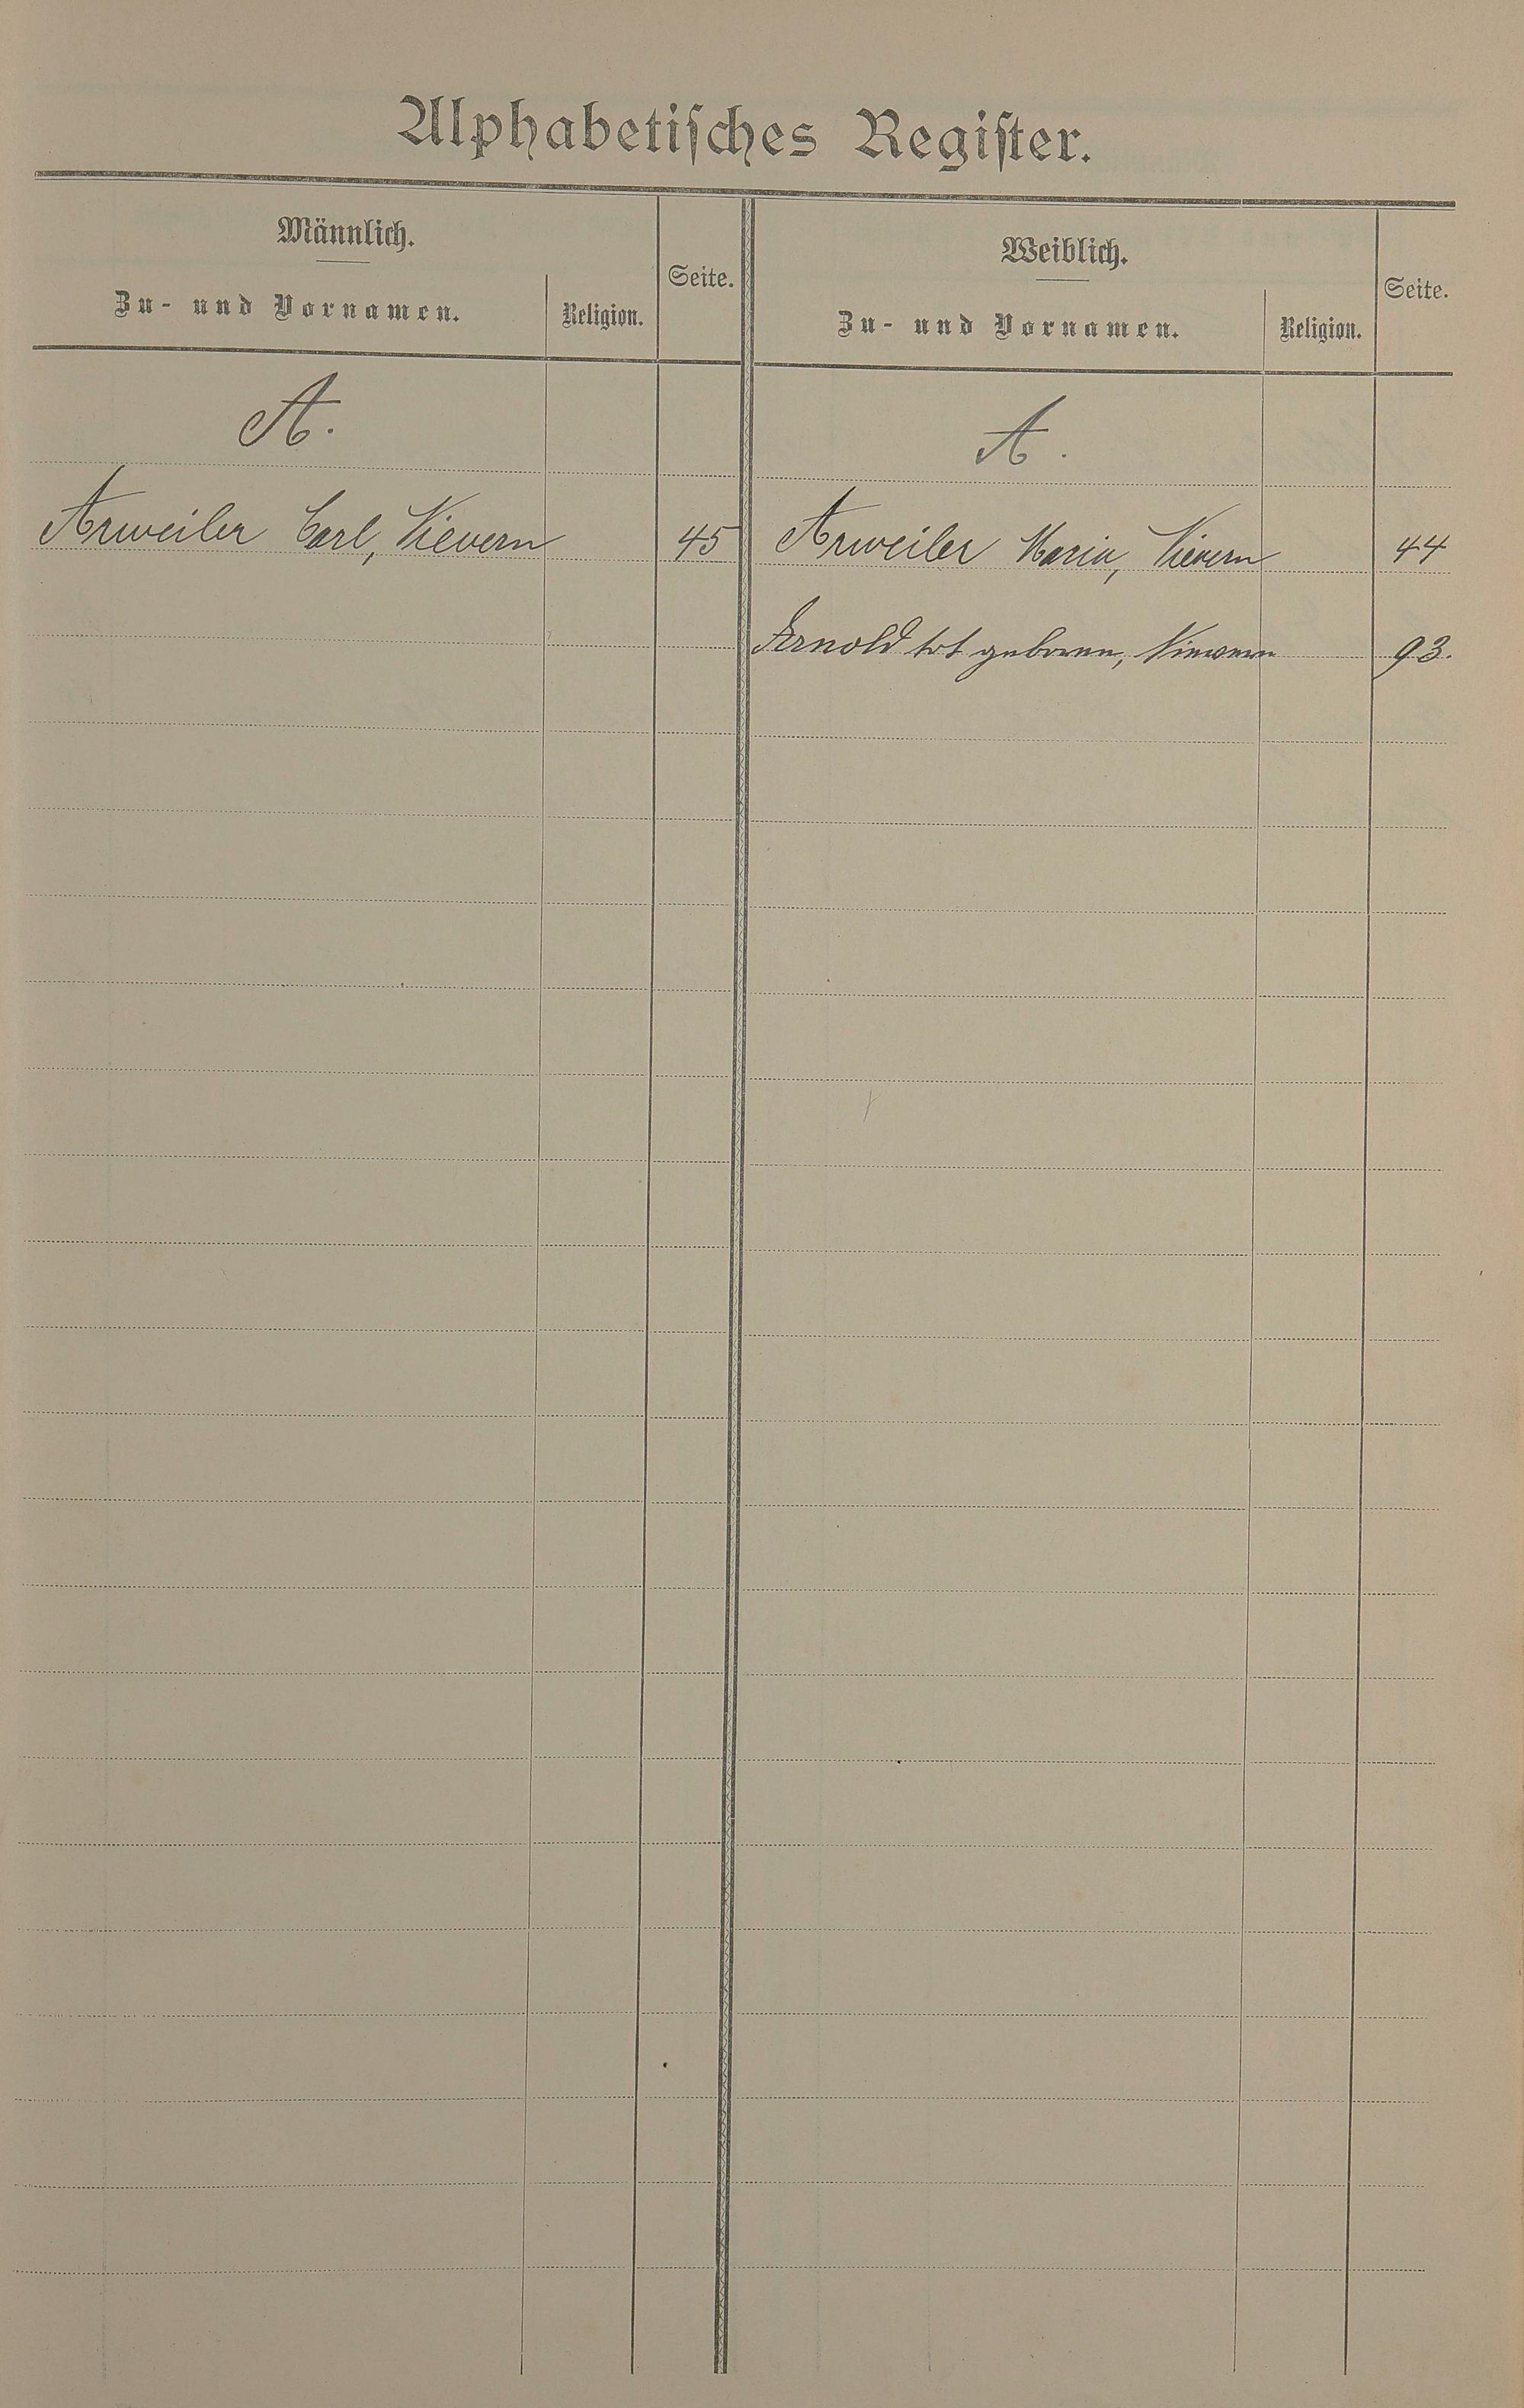 Alphabetisches Register.
Männlich.
Zu- und Vornamen.
Religion.
Seite.
Weiblich.
Zu- und Vornamen.
Religion.
Seite.
A.
A.
Arweiler Carl, Nievern 45
Arweiler Maria, Nievern 44
Arnold tot geboren, Nievern 93.